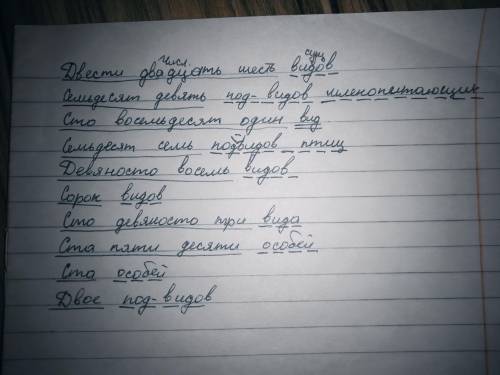 числ. сущ
Двести двадцать шесть видов
Семьдесят девять под-видов членопитающих
Сто восемьдесят один вид
Семьдесят семь подвидов птиц
Девяносто восемь видов
Сорок видов
Сто девяносто три вида
Ста пяти десяти особей
Ста особей
Двое под-видов